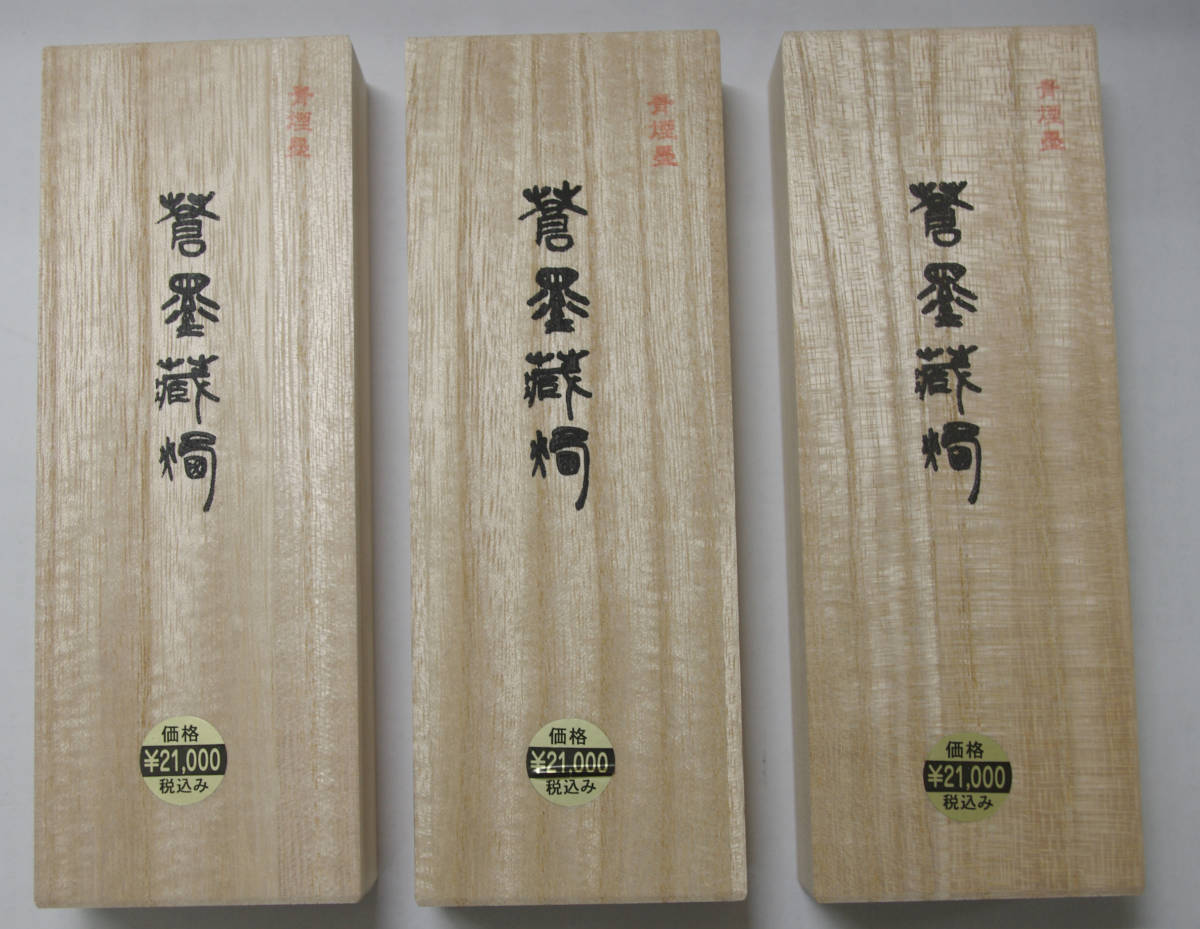 青煙墨
蒼墨藏
価格
¥21,000
税込み
青煙墨
蒼墨藏
価格
¥21,000
税込み
青煙墨
蒼墨藏
価格
¥21,000
税込み